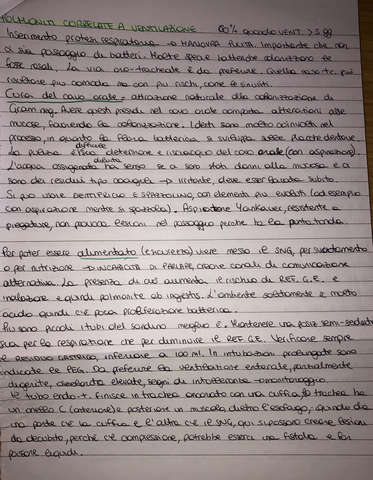 POLMONITI CORRELATE A VENTILAZIONE 60% quando VENT. > 5 gg
Inserimento protesi respiratoria → MANOVRA PULITA. Importante che non
ci sia passaggio di batteri. Molte specie batteriche colonizzano le
fosse nasali. La via oro-tracheale è da preferire. Quella naso tr. può
risultare più comoda ma con più rischi, come le sinusiti.
Cura del cavo orale = attrazione naturale alla colonizzazione di
Gram neg. Avere questi presidi nel cavo orale comporta alterazioni alle
mucose, favorendo la colonizzazione. I denti sono molto coinvolti nel
processo, in quanto la flora batterica si sviluppa sulle placche dentarie.
La pulizia è una detersione e risciacquo del cavo orale (con aspirazione).
diluita
L'acqua ossigenata ha senso se ci sono stati danni alla mucosa e ci
sono dei residui tipo coaguli → irritante, deve essere lavata subito.
Si può usare DENTIFRICIO e SPAZZOLINO, con elementi più evoluti (ad esempio
con aspirazione mentre si spazzola). Aspiratore Yankauer, resistente a
piegature, non provoca lesioni nel passaggio perché ha la punta tonda.
Per poter essere alimentato (e svuotato) viene messo il SNG, per svuotamento
o per nutrizione → INCAPACITÀ DI creare canali di comunicazione
alternativa. La presenza di ciò aumenta il rischio di REF. G.E. e
inalazione e quindi polmonite ab ingestis. L'ambiente solitamente è molto
acido quindi c'è poca proliferazione batterica.
Più sono piccoli i tubi del sondino meglio è. Mantenere una posiz semi-seduta
sia per la respirazione che per diminuire il REF GE. Verificare sempre
il RESIDUO GASTRICO, inferiore a 100 ml. In intubazioni prolungate sono
indicate le PEG. Da preferire la ventilazione enterale, parzialmente
digerite, elevate, segni di intolleranza → monitoraggio.
Il tubo endo-t. finisce in trachea ancorato con una cuffia, la trachea ha
un anello C (anteriore) e posteriore un muscolo dietro l'esofago, quindi da
una parte c'è la cuffia e l'altra c'è il SNG, qui si possono creare lesioni
da decubito, perché c'è compressione, potrebbe esserci una fistola e far
passare liquidi.